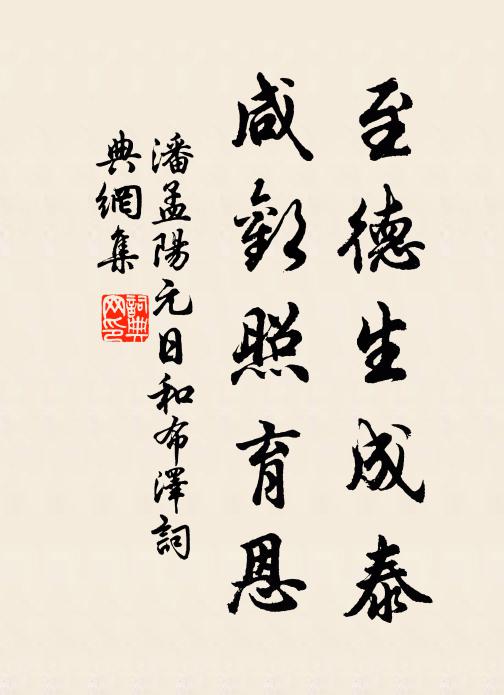 至德生成泰
咸歡照育恩
潘孟陽元日和布澤詞
典網集
詞典網印